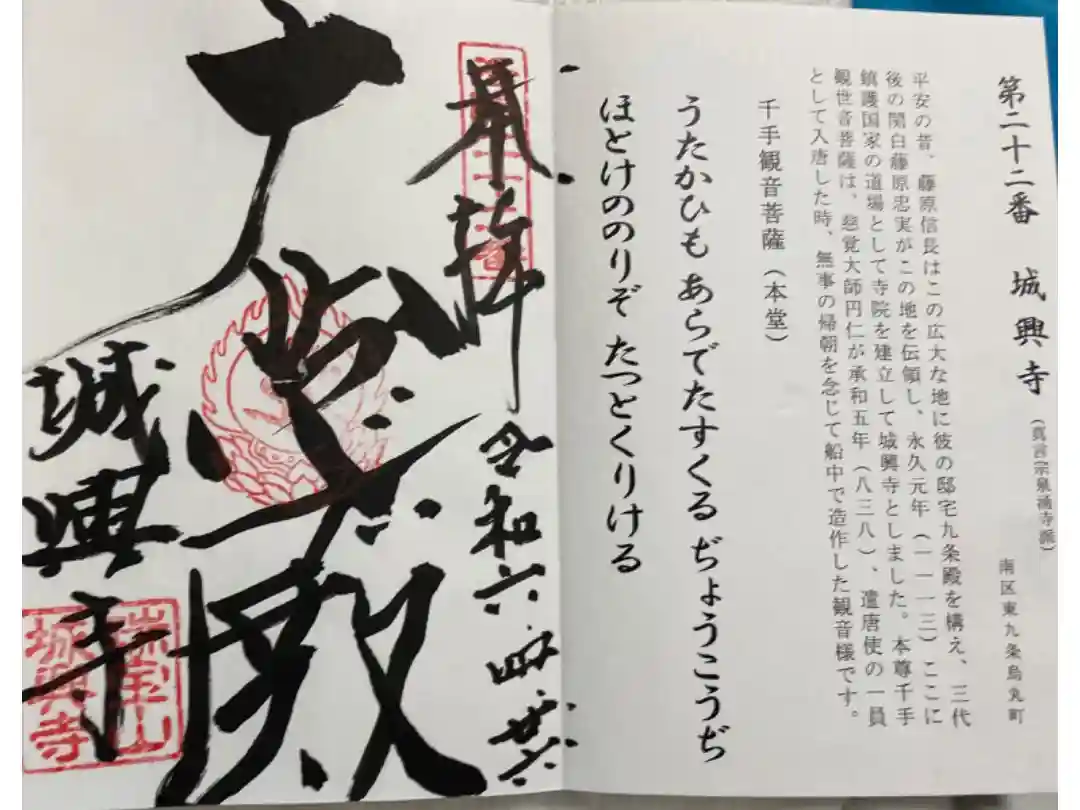 第二十二番 城興寺(真言宗泉涌寺派) 南区東九条烏丸町
平安の昔、藤原信長はこの広大な地に彼の邸宅九条殿を構え、三代
後の関白藤原忠実がこの地を伝領し、永久元年(一一一三)ここに
鎮護国家の道場として寺院を建立して城興寺としました。本尊千手
観世音菩薩は、慈覚大師円仁が承和五年(八三八)、遣唐使の一員
として入唐した時、無事の帰朝を念じて船中で造作した観音様です。
千手観音菩薩(本堂)
うたかひも あらでたすくる ぢょうこうぢ
ほとけののりぞ たつとくりける
奉拝
令和六.四.廿六
大悲殿
城興寺
瑞宝山
城興寺